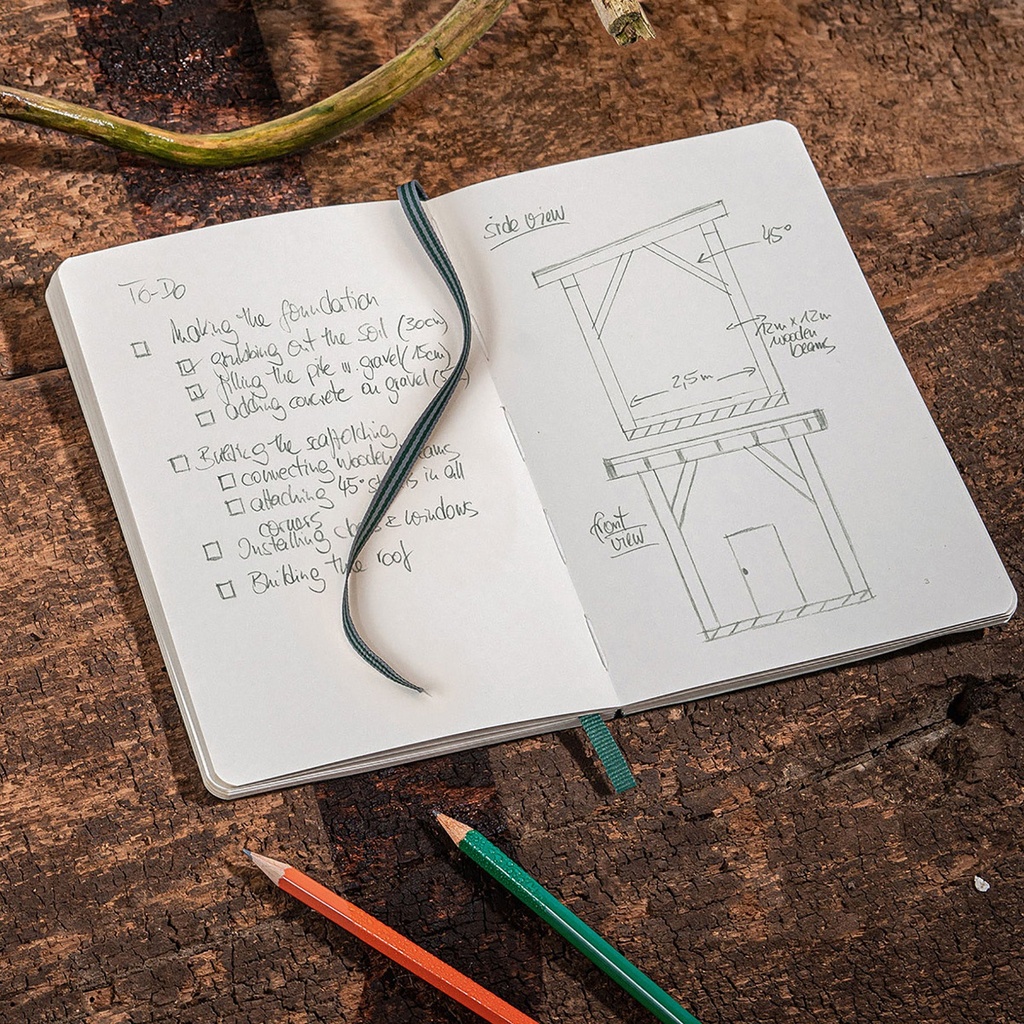 To-Do
Making the foundation
grubbing out the soil (30cm)
filling the pile w. gravel (15cm)
adding concrete on gravel (5
Building the scaffolding
connecting wooden beams
attaching 45° in all
corners
Installing & windows
Building the roof
side view
45°
12m x 12m
wooden
beams
2,5m
front
view